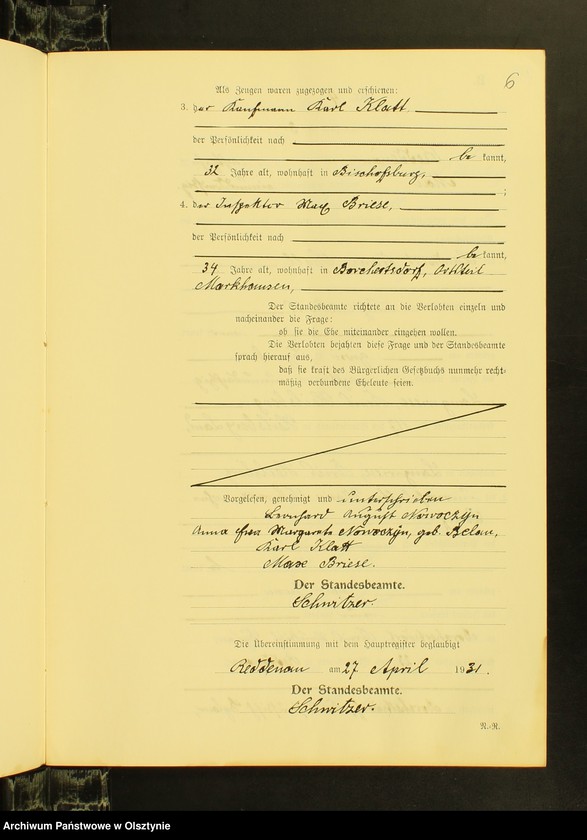 6
Als Zeugen waren zugezogen und erschienen:
3. der Kaufmann Karl Klatt
der Persönlichkeit nach
be kannt,
32 Jahre alt, wohnhaft in Bischofsburg,
;
4. der Inspektor Max Briese,
der Persönlichkeit nach
be kannt,
34 Jahre alt, wohnhaft in Borchertsdorf, Ortsteil
Markhausen,
Der Standesbeamte richtete an die Verlobten einzeln und
nacheinander die Frage:
ob sie die Ehe miteinander eingehen wollen.
Die Verlobten bejahten diese Frage und der Standesbeamte
sprach hierauf aus,
daß sie kraft des Bürgerlichen Gesetzbuchs nunmehr recht-
mäßig verbundene Eheleute seien.
Vorgelesen, genehmigt und unterschrieben
Bernhard August Nowoczyn
Anna Margarete Nowoczyn, geb. Belau,
Karl Klatt
Max Briese.
Der Standesbeamte.
Schnitzer.
Die Übereinstimmung mit dem Hauptregister beglaubigt
Reddenau am 27 April 1931.
Der Standesbeamte.
Schnitzer.
N.-R.
Archiwum Państwowe w Olsztynie